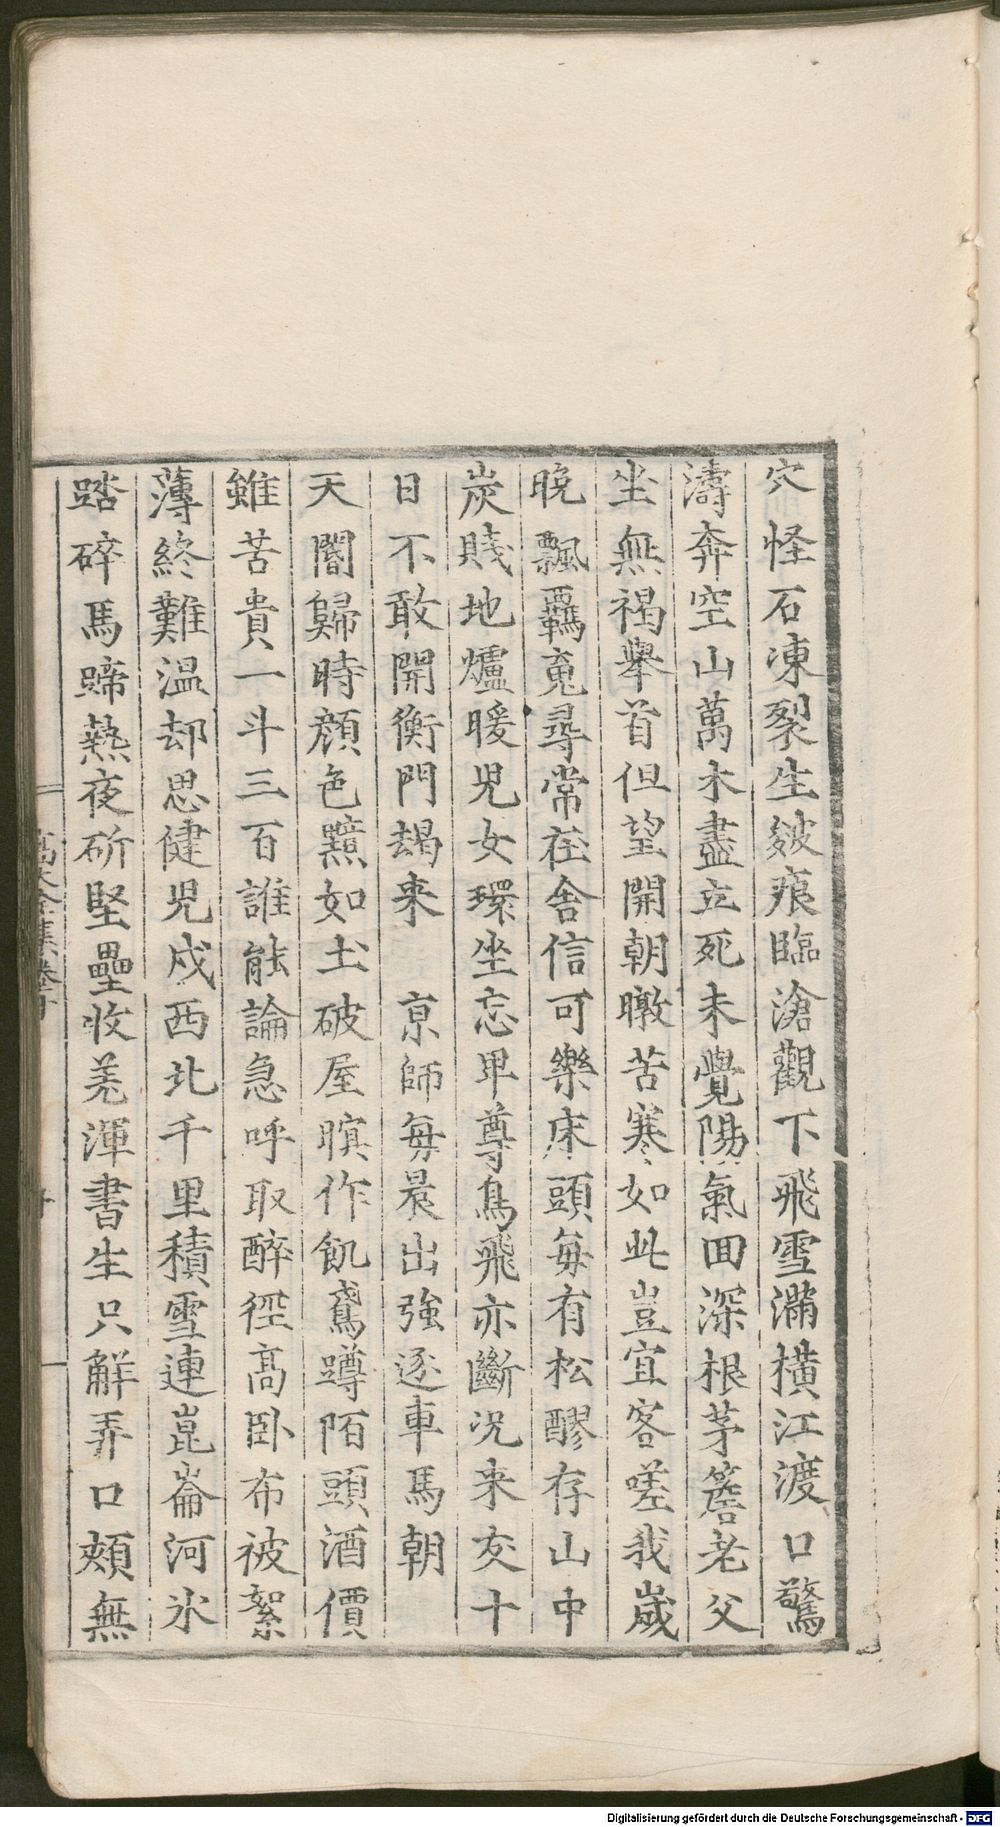 穴怪石凍裂生皴痕臨滄觀下飛雪滿橫江渡口驚
濤奔空山萬木盡立死未覺陽氣回深根茅簷老父
坐無褐舉首但望開朝暾苦寒如此豈宜客嗟我歲
晚飄羈䰟尋常在舍信可樂床頭每有松醪存山中
炭賤地爐暖兒女環坐忘卑尊鳥飛亦斷況来友十
日不敢開衡門朅来 京師每晨出強逐車馬朝
天閽歸時顔色黯如土破屋暝作飢鳶蹲陌頭酒價
雖苦貴一斗三百誰能論急呼取醉徑高卧布被絮
薄終難温却思健兒戍西北千里積雪連崑崙河氷
踏碎馬蹄熱夜斫堅壘收羌渾書生只解弄口頰無
Digitalisierung gefördert durch die Deutsche Forschungsgemeinschaft - DFG